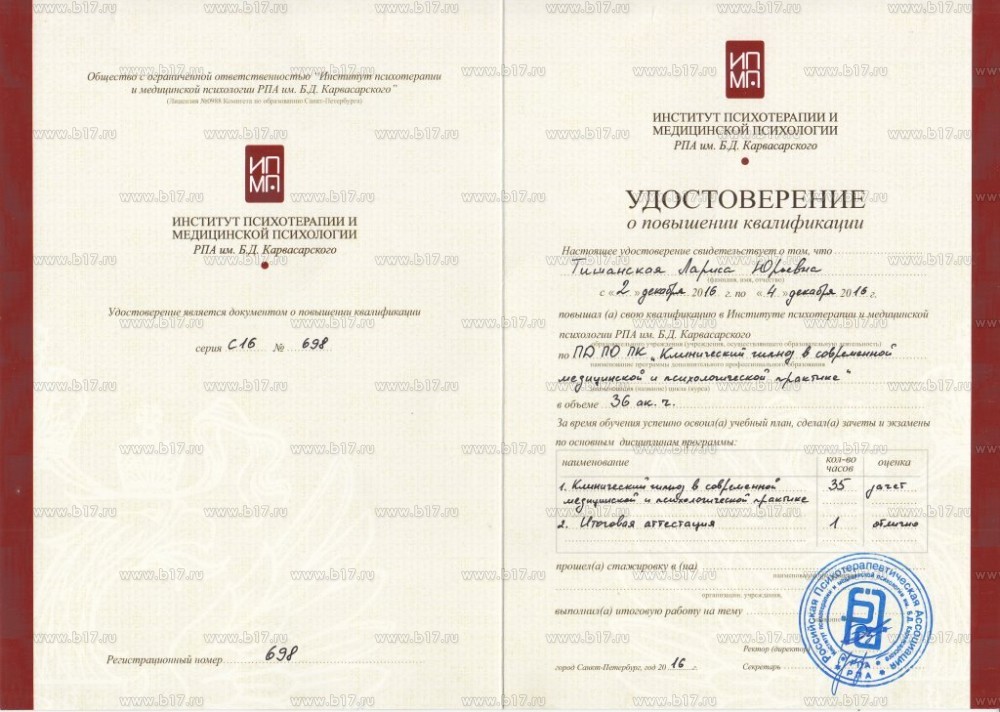 Общество с ограниченной ответственностью "Институт психотерапии
и медицинской психологии РПА им. Б.Д. Карвасарского"
(Лицензия №0988 Комитета по образованию Санкт-Петербурга)
ИП
МП
ИНСТИТУТ ПСИХОТЕРАПИИ И
МЕДИЦИНСКОЙ ПСИХОЛОГИИ
РПА им. Б.Д. Карвасарского
Удостоверение является документом о повышении квалификации
серия С16 № 698
Регистрационный номер 698
ИП
МП
ИНСТИТУТ ПСИХОТЕРАПИИ И
МЕДИЦИНСКОЙ ПСИХОЛОГИИ
РПА им. Б.Д. Карвасарского
УДОСТОВЕРЕНИЕ
о повышении квалификации
Настоящее удостоверение свидетельствует о том, что
Тиманская Лариса Юрьевна
(фамилия, имя, отчество)
с «2» декабря 2016 г. по «4» декабря 2016 г.
повышал (а) свою квалификацию в Институте психотерапии и медицинской
психологии РПА им. Б.Д. Карвасарского
образовательного учреждения (учреждения, осуществляющего образовательную деятельность)
по ПД ПО ПК „Клинический гипноз в современной
наименование программы дополнительного профессионального образования
медицинской и психологической практике"
в объеме 36 ак. ч.
За время обучения успешно освоил(а) учебный план, сделал(а) зачеты и экзамены
по основным дисциплинам программы:
наименование кол-во часов оценка
1. Клинический гипноз в современной 35 зачет
медицинской и психологической практике
2. Итоговая аттестация 1 отлично
прошел(а) стажировку в (на)
организации, учреждения,
выполниз(а) итоговую работу на тему
Ректор (директор)
город Санкт-Петербург, год 2016 г. Секретарь
Российская Психотерапевтическая Ассоциация
РПА
www.b17.ru